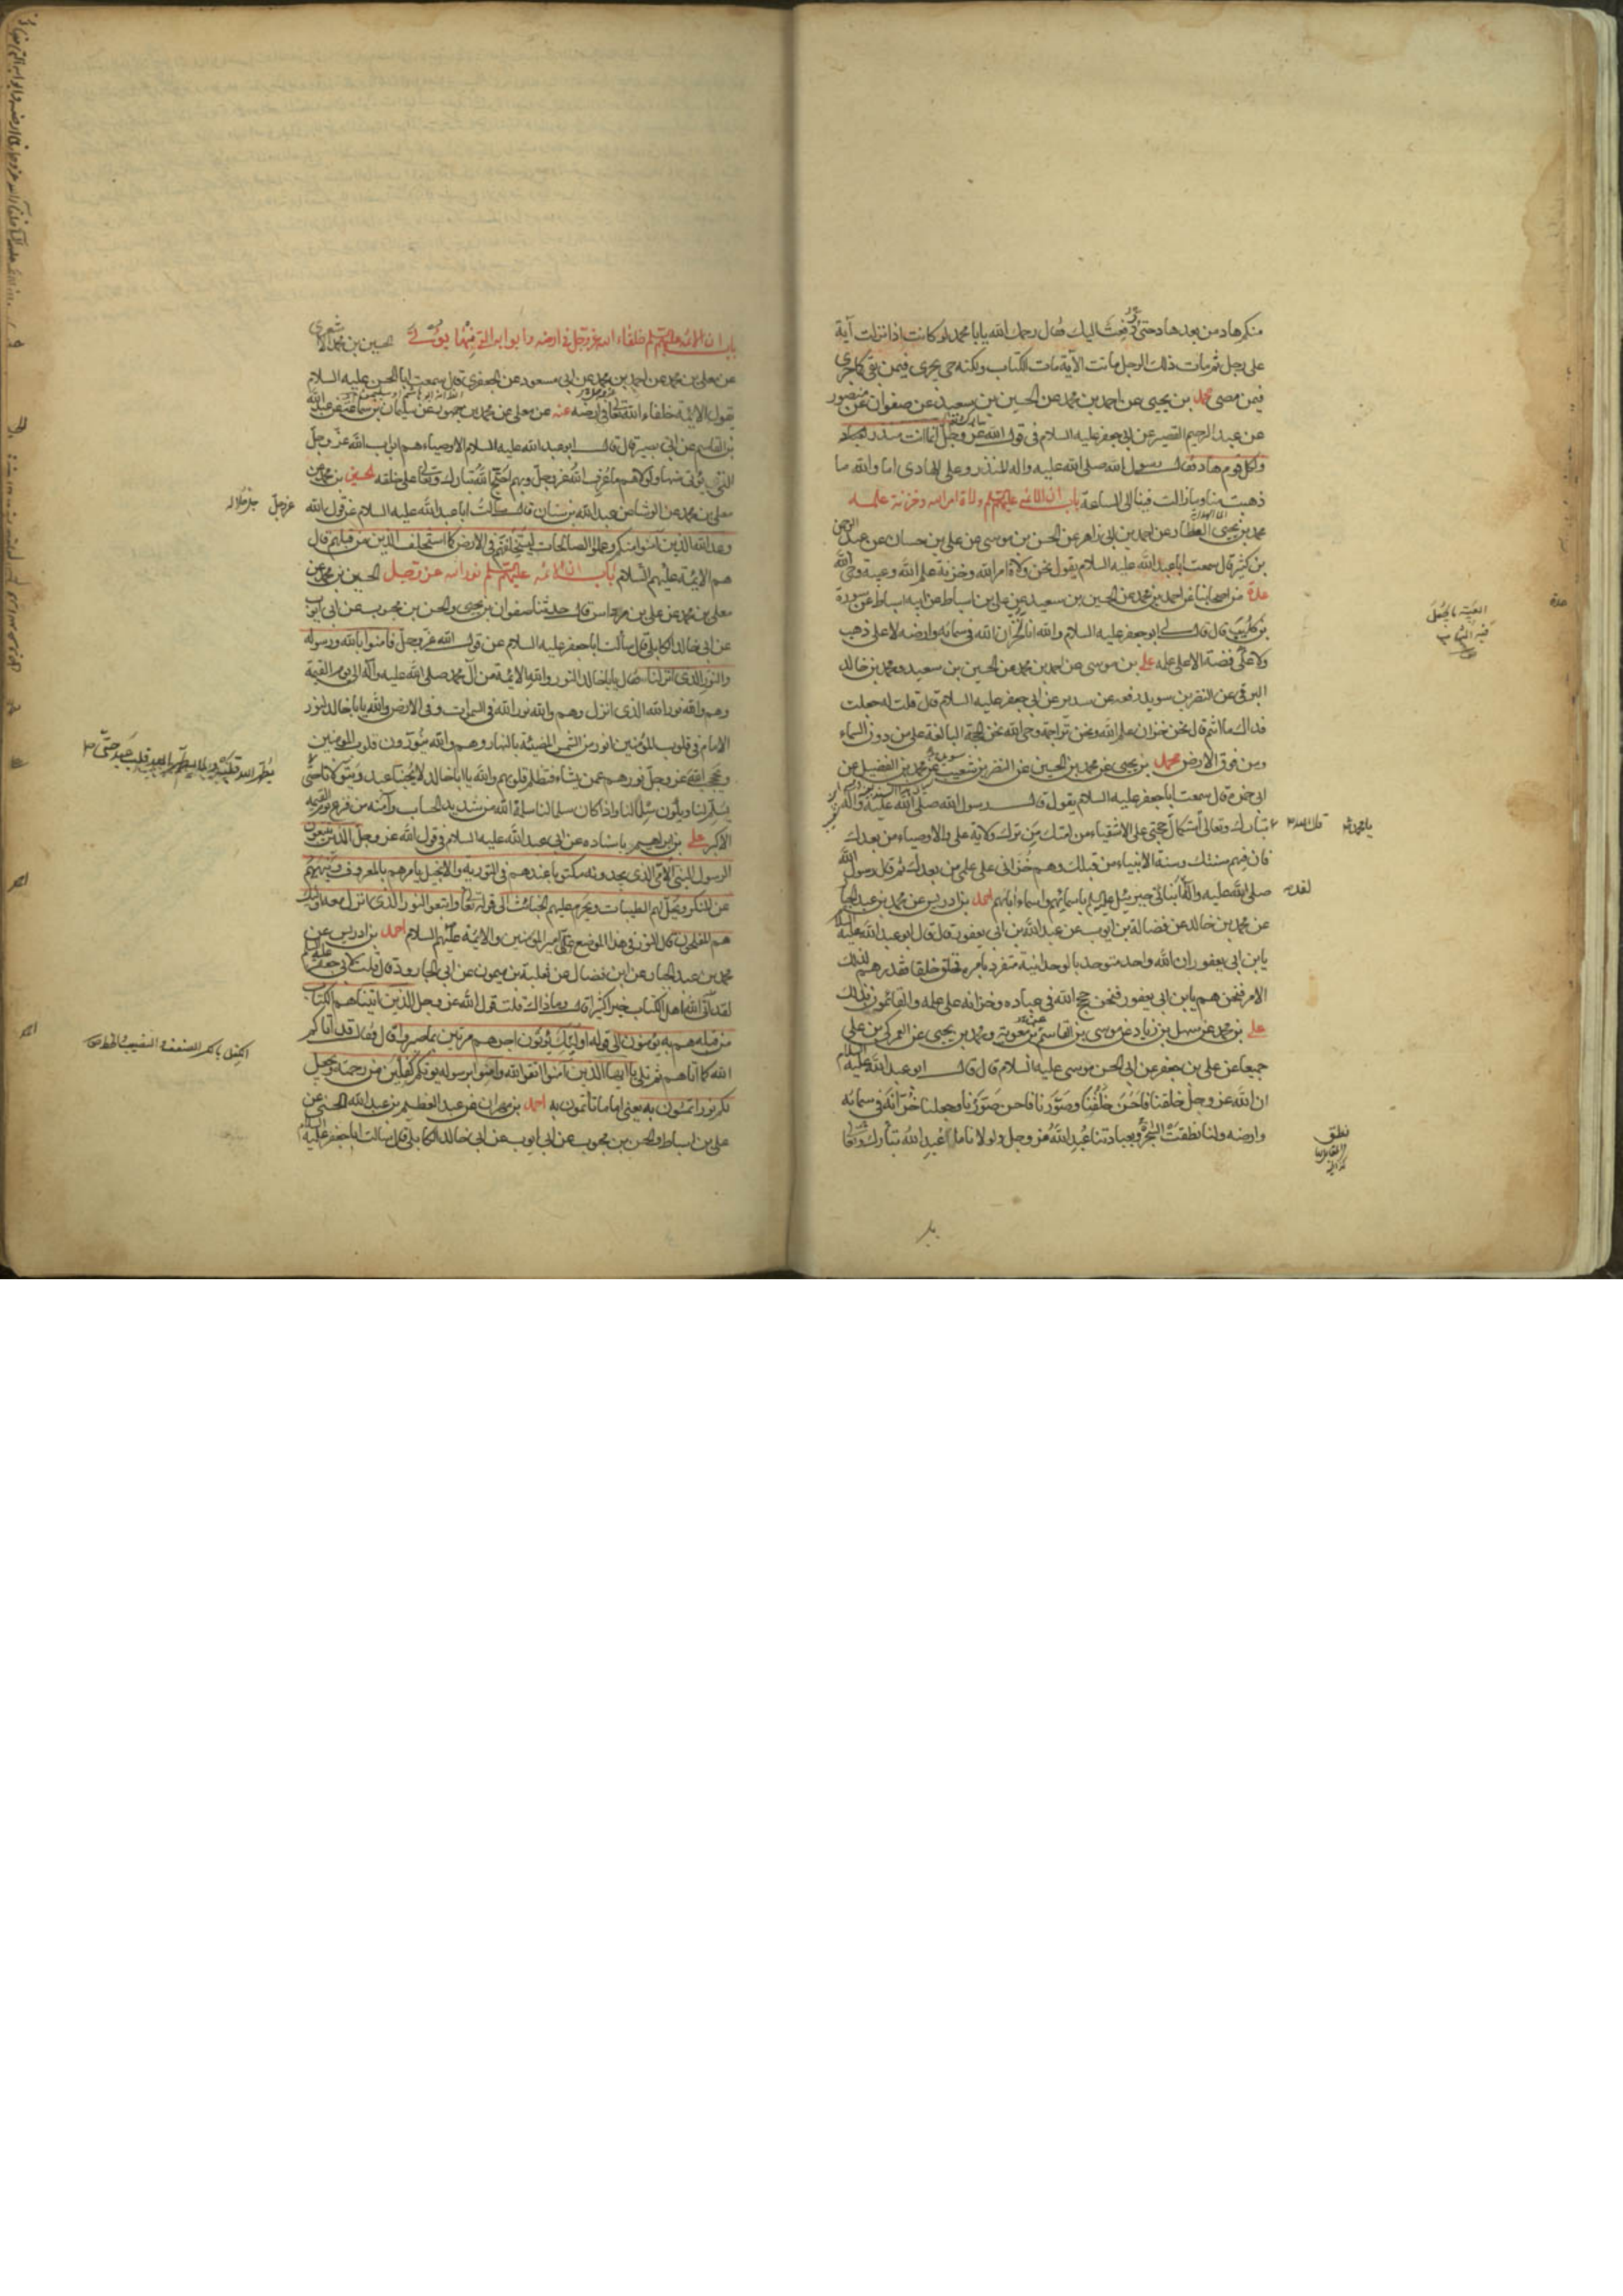 منكم هاد من بعد هاد حتى دفعت اليك فقال رحمك الله يابا محمد لو كانت اذا نزلت آية
على رجل ثم مات ذلك الرجل ماتت الآية مات الكتاب ولكنه حى يجرى فيمن بقى كما جرى
فيمن مضى محمد بن يحيى عن احمد بن محمد عن الحسين بن سعيد عن صفوان عن منصور
عن عبد الرحيم القصير عن ابى جعفر عليه السلام فى قول الله عز وجل انما انت منذر
ولكل قوم هاد فقال رسول الله صلى الله عليه واله المنذر وعلى الهادى اما والله ما
ذهبت منا وما زالت فينا الى الساعة باب ان الائمة عليهم السلم ولاة امر الله وخزنة علمه
محمد بن يحيى العطار عن احمد بن ابى زاهر عن الحسن بن موسى عن على بن حسان عن عبد الرحمن
بن كثير قال سمعت ابا عبد الله عليه السلام يقول نحن ولاة امر الله وخزنة علم الله وعيبة وحى الله
عدة من اصحابنا عن احمد بن محمد عن الحسين بن سعيد عن على بن اسباط عن ابيه اسباط عن سورة
بن كليب قال قال لى ابو جعفر عليه السلام والله انا لخزان الله فى سمائه وارضه لا على ذهب
ولا على فضة الا على علمه على بن موسى عن احمد بن محمد عن الحسين بن سعيد ومحمد بن خالد
البرقى عن النضر بن سويد رفعه عن سدير عن ابى جعفر عليه السلام قال قلت له جعلت
فداك ما انتم قال نحن خزان علم الله ونحن تراجمة وحى الله نحن الحجة البالغة على من دون السماء
ومن فوق الارض محمد بن يحيى عن محمد بن الحسين عن النضر بن شعيب عن محمد بن الفضيل عن
ابى حمزة قال سمعت ابا جعفر عليه السلام يقول قال رسول الله صلى الله عليه واله
تبارك وتعالى استكمال حجتى على الاشقياء من امتك من ترك ولاية على والاوصياء من بعدك
فان فيهم سنتك وسنة الانبياء من قبلك وهم خزانى على علمى من بعدك ثم قال رسول الله
صلى الله عليه واله انبأنى جبرئيل عليه السلم باسمائهم واسماء آبائهم احمد بن ادريس عن محمد بن عبد الجبار
عن محمد بن خالد عن فضالة بن ايوب عن عبد الله بن ابى يعفور قال قال ابو عبد الله عليه السلام
يابن ابى يعفور ان الله واحد متوحد بالوحدانية متفرد بامره فخلق خلقا فقدرهم لذلك
الامر فنحن هم يابن ابى يعفور فنحن حجج الله فى عباده وخزانه على علمه والقائمون بذلك
على بن محمد عن سهل بن زياد عن موسى بن القاسم بن معوية ومحمد بن يحيى عن العمركى بن على
جميعا عن على بن جعفر عن ابى الحسن موسى عليه السلام قال قال ابو عبد الله عليه السلام
ان الله عز وجل خلقنا فاحسن خلقنا وصورنا فاحسن صورنا وجعلنا خزانه فى سمائه
وارضه ولنا نطقت الشجرة وبعبادتنا عبد الله عز وجل ولولانا ما عبد الله تبارك وتعالى
العيبة ما يجعل
فيه الثياب
عدة
يا محمد
قال الله
لقد
نطق
باب ان الائمة عليهم السلم خلفاء الله عز وجل فى ارضه وابوابه التى منها يؤتى الحسين بن محمد الاشعرى
عن معلى بن محمد عن احمد بن محمد عن ابى مسعود عن الجعفرى قال سمعت ابا الحسن عليه السلام
يقول الائمة خلفاء الله تعالى فى ارضه عنه عن معلى عن محمد بن جمهور عن سليمان بن سماعة عن عبد الله
بن القاسم عن ابى بصير قال قال ابو عبد الله عليه السلام الاوصياء هم ابواب الله عز وجل
التى يؤتى منها ولولاهم ما عرف الله عز وجل وبهم احتج الله تبارك وتعالى على خلقه الحسين بن محمد عن
معلى بن محمد عن الوشا عن عبد الله بن سنان قال سالت ابا عبد الله عليه السلام عن قول الله
وعد الله الذين آمنوا منكم وعملوا الصالحات ليستخلفنهم فى الارض كما استخلف الذين من قبلهم قال
هم الائمة عليهم السلام باب ان الائمة عليهم السلم نور الله عز وجل الحسين بن محمد عن
معلى بن محمد عن على بن مرداس قال حدثنا صفوان بن يحيى والحسن بن محبوب عن ابى ايوب
عن ابى خالد الكابلى قال سألت ابا جعفر عليه السلام عن قول الله عز وجل فآمنوا بالله ورسوله
والنور الذى انزلنا فقال يابا خالد النور والله الائمة من آل محمد صلى الله عليه وآله الى يوم القيمة
وهم والله نور الله الذى انزل وهم والله نور الله فى السموات وفى الارض والله يابا خالد لنور
الامام فى قلوب المؤمنين انور من الشمس المضيئة بالنهار وهم والله ينورون قلوب المومنين
ويحجب الله عز وجل نورهم عمن يشاء فتظلم قلوبهم والله يا ابا خالد لا يحبنا عبد ويتولانا حتى
يسلم لنا ويكون سلما لنا فاذا كان سلما لنا سلمه الله من شديد الحساب وآمنه من فزع يوم القيمه
الاكبر على بن ابراهيم باسناده عن ابى عبد الله عليه السلام فى قول الله عز وجل الذين يتبعون
الرسول النبى الامى الذى يجدونه مكتوبا عندهم فى التورية والانجيل يامرهم بالمعروف وينهيهم
عن المنكر ويحل لهم الطيبات ويحرم عليهم الخبائث الى قوله تعالى واتبعوا النور الذى انزل معه اولئك
هم المفلحون قال النور فى هذا الموضع على امير المؤمنين والائمة عليهم السلام احمد بن ادريس عن
محمد بن عبد الجبار عن ابن فضال عن ثعلبة بن ميمون عن ابى الجارود قال قلت لابى جعفر عليه السلم
لقد آتى الله اهل الكتاب خيرا كثيرا قال وما ذاك قلت قول الله عز وجل الذين اتيناهم الكتاب
من قبله هم به يؤمنون الى قوله اولئك يؤتون اجرهم مرتين بما صبروا قال فقال قد آتاكم
الله كما آتاهم ثم تلى يا ايها الذين آمنوا اتقوا الله وآمنوا برسوله يؤتكم كفلين من رحمته ويجعل
لكم نورا تمشون به يعنى اماما تأتمون به احمد بن مهران عن عبد العظيم بن عبد الله الحسنى عن
على بن اسباط والحسن بن محبوب عن ابى ايوب عن ابى خالد الكابلى قال سالت ابا جعفر عليه السلام
عز وجل جل جلاله
يطهر الله قلبه ولا يطهر الله قلب عبد حتى
الكفل بالكسر الضعف النصيب الحظ